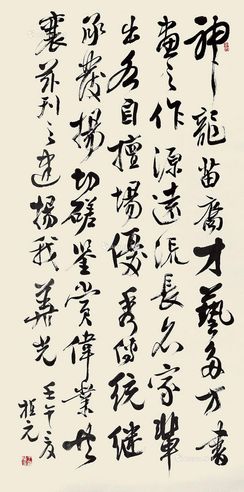 神龍苗裔才藝多方書
畫之作源遠流長名家輩
出各自擅場優秀傳統繼
承發揚切磋鑒賞偉業共
襄茲刊之建揚我華光 壬午夏
植元